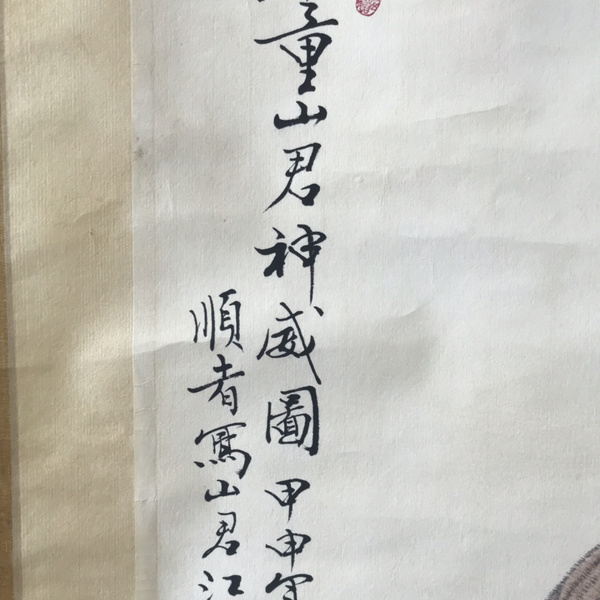 童山君神威圖甲申
順者寫山君江